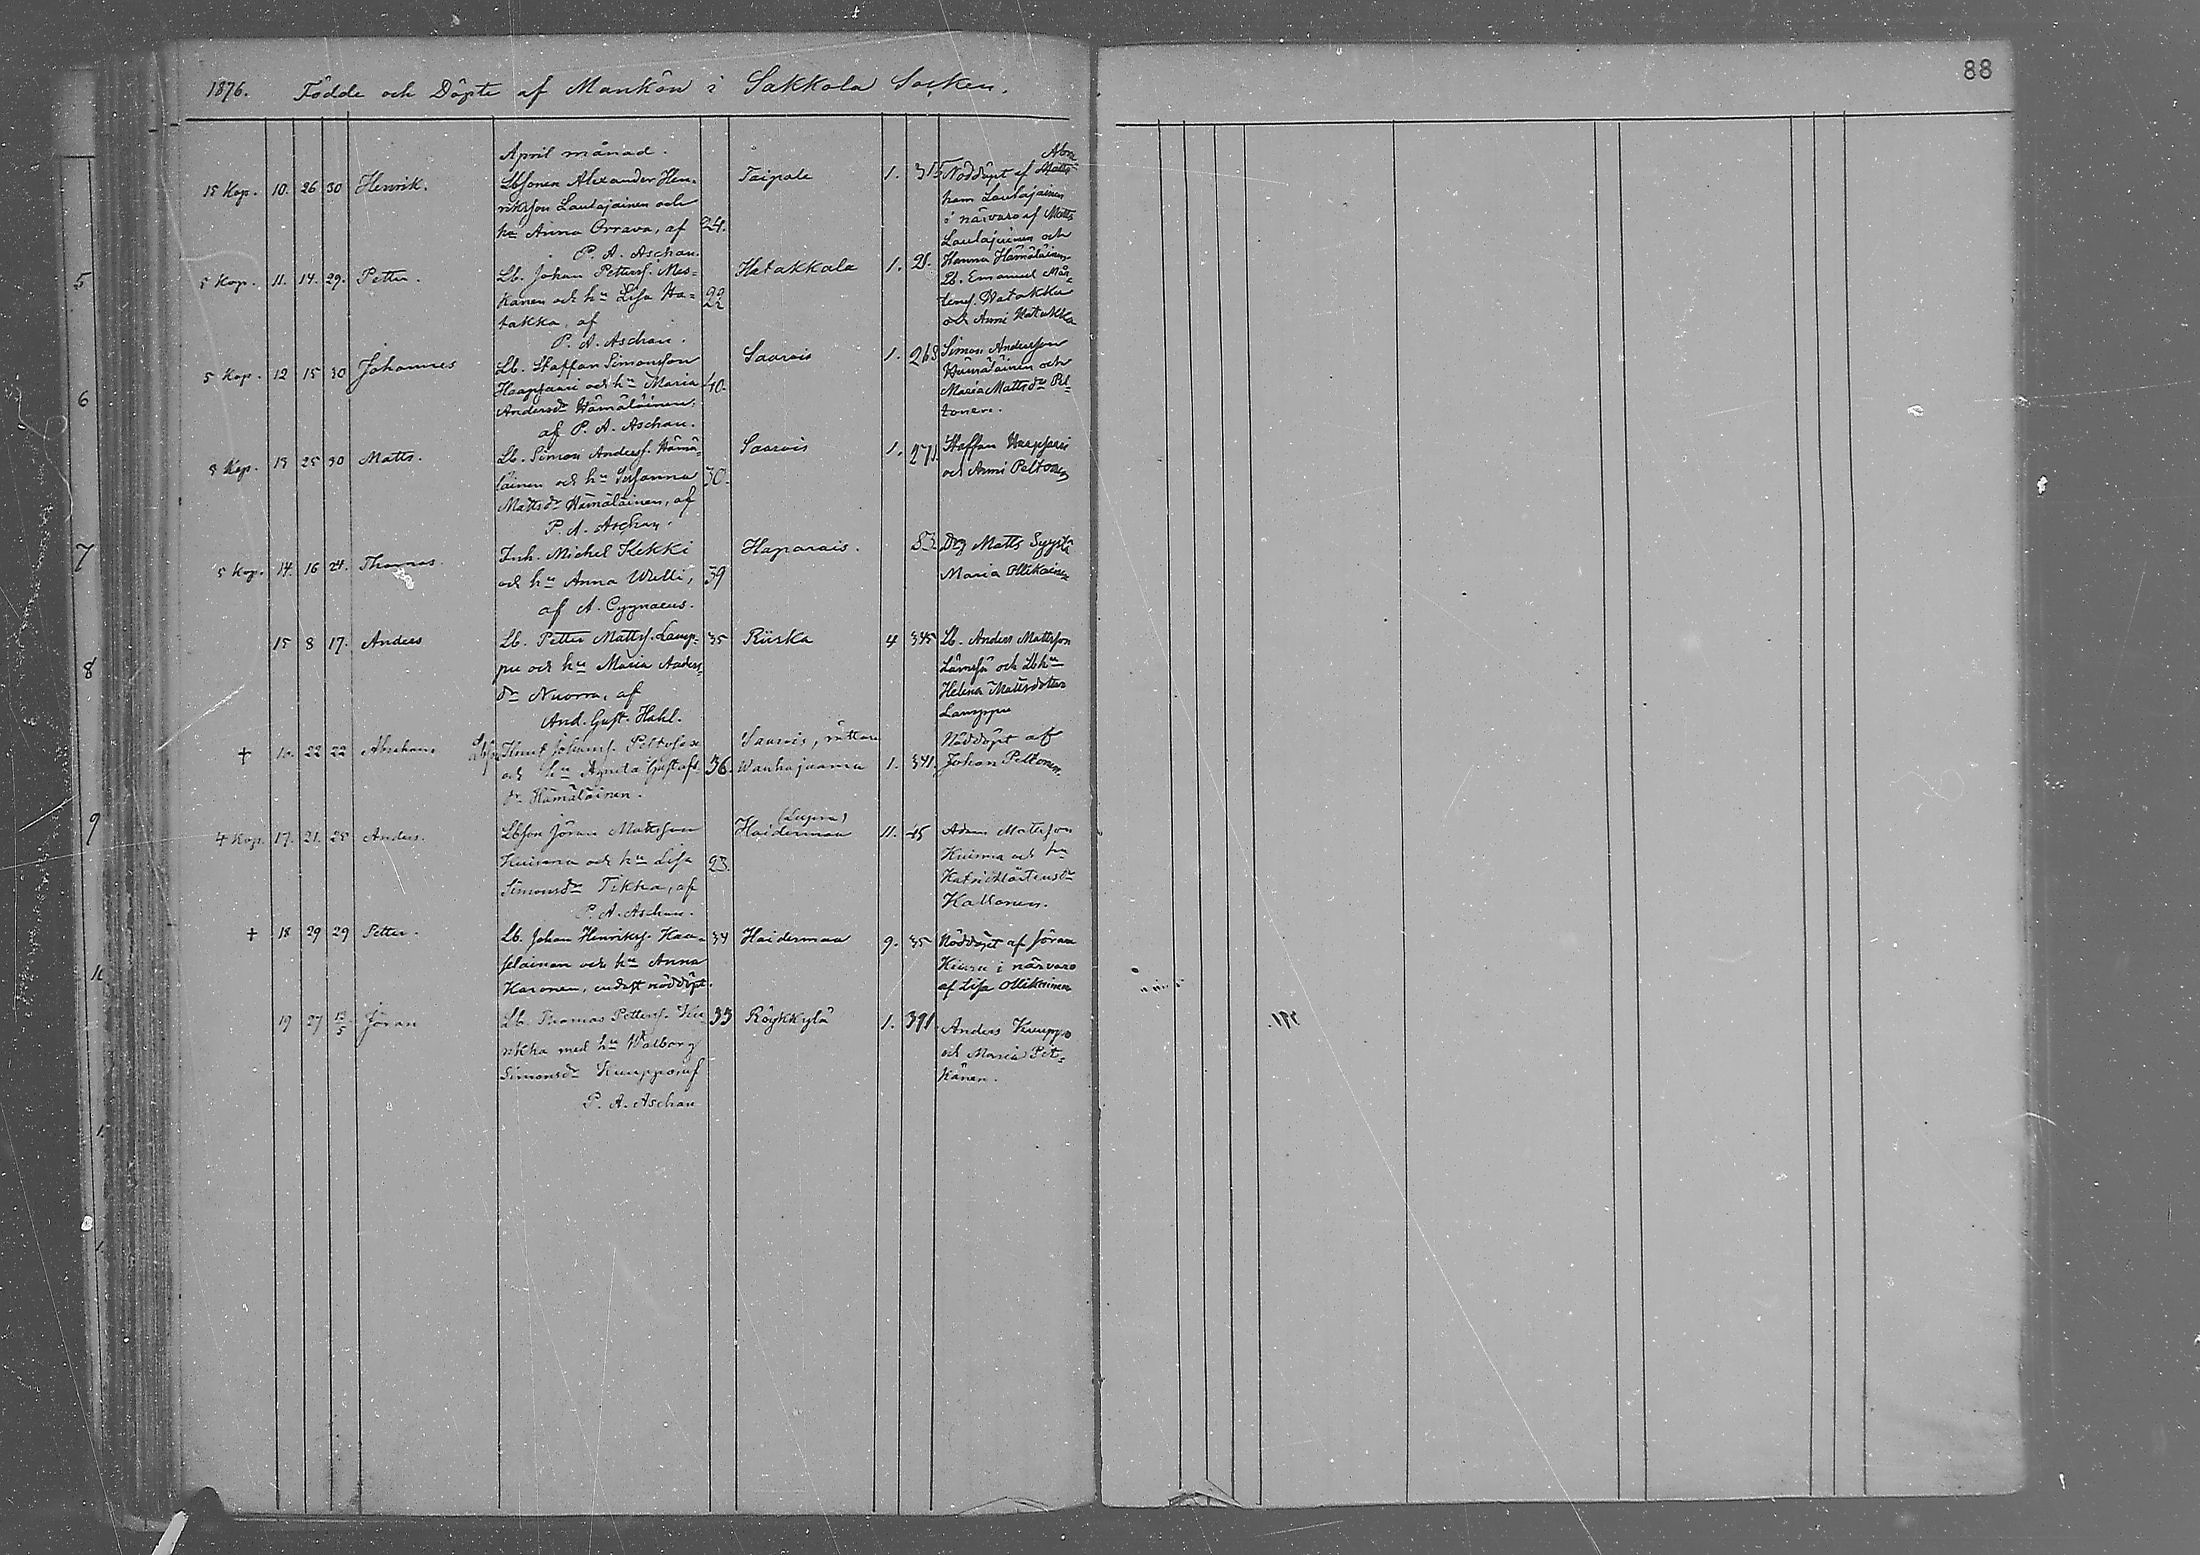 1876. Födde och Döpte af Mankön i Sakkola Socken.
88
April månad.
15 Kop. 10. 26 30 Henrik.
Lbsonen Alexander Hen-
riksson Laulajainen och
hu Anna Orrava, af
P. A. Aschan.
24.
Taipale
1. 315
Nöddöpt af
ham Laulajainen
i närvaro af Matts
Laulajainen och
Hanna Hämäläinen
5 Kop. 11. 14. 29. Petter.
Lb. Johan Petterss. Mes-
kanen och hu Lisa Ha-
takka, af
P. A. Aschan.
22
Hatakkala
1. 21.
Lb. Emanuel Mår-
tens. Hatakka
och Anni Hatakka
5 Kop. 12 15 30 Johannes
Lb. Staffan Simonsson
Haapsaari och hu Maria
Andersdr Hämäläinen,
af P. A. Aschan.
40.
Saarois
1. 268
Simon Andersson
Hämäläinen och
Maria Mattsdr Pel-
tonen.
5 Kop. 13 25 30 Matts.
Lb. Simon Anderss. Hämä-
läinen och hu Susanna
Mattsdr Hämäläinen, af
P. A. Aschan.
30.
Saarois
1. 271
Staffan Haapsaari
och Anni Peltonen
5 Kop. 14. 16 24. Thomas.
Inh. Michel Kekki
och hu Anna Wielli,
af A. Cygnaeus.
39
Haparais.
53
Drg Matts
Maria Ollikainen
15 8 17. Anders
Lb. Petter Mattss. Lamp-
pu och hu Maria Anders
dr Nuora, af
And. Gust. Hahl.
35
Riiska
4 345
Lb. Anders Mattsson
Lämsä och Lbhu
Helena Mattsdotter
Lamppu
† 16. 22 22 Abraham
Knut Johanss. Peltonen
och hu Agneta Gustafs
dr Hämäläinen.
36.
Saarois, rättare
Wanhajaama
1. 341.
Nöddöpt af
Johan Peltonen.
4 Kop. 17. 21. 25 Anders.
Lbson Jöran Mattsson
Kuisma och hu Lisa
Simonsdr Tikka, af
P. A. Aschan.
23.
Haidermaa
11. 45
Adam Mattsson
Kuisma och hu
Katri Mårtensdr
Kallonen.
† 18 29 29 Petter.
Lb. Johan Henrikss. Kaa-
selainen och hu Anna
Karonen, endast nöddöpt.
34
Haidermaa
9. 35
Nöddöpt af Jöran
i närvaro
af Lisa Ollikainen
19 27 13/5 Jöran
Lb. Thomas Petterss.
rikka med hu Walborg
Simonsdr Kuuppo af
P. A. Aschan
33
Röykkylä
1. 391
Anders Kuuppo
och Maria Pit-
känen.
5
6
7
8
9